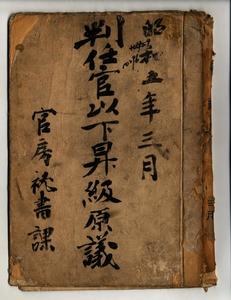 昭和五年三月
判任官以下昇級原議
官房秘書課